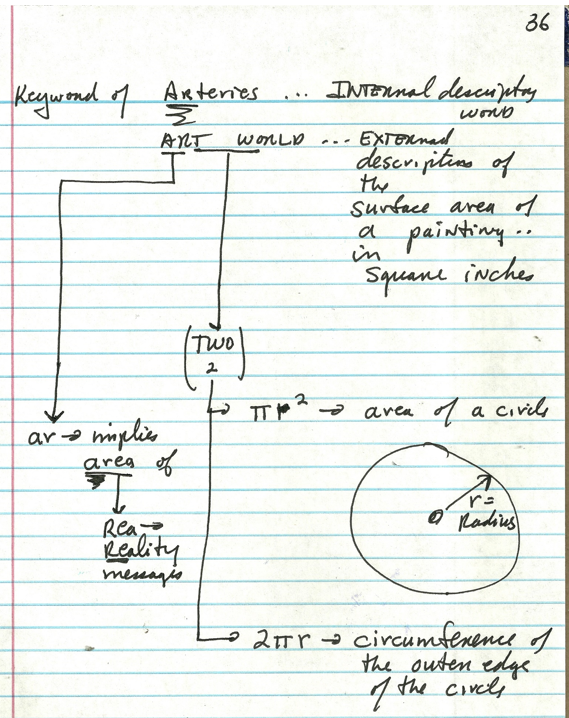 36
Keyword of Arteries ... INTERNAL descriptor
WORD
ART WORLD ... EXTERNAL
description of
the
surface area of
a painting ..
in
square inches
(TWO
2)
πr² → area of a circle
ar → implies
area of
r =
Radius
Rea →
Reality
messages
2πr → circumference of
the outer edge
of the circle